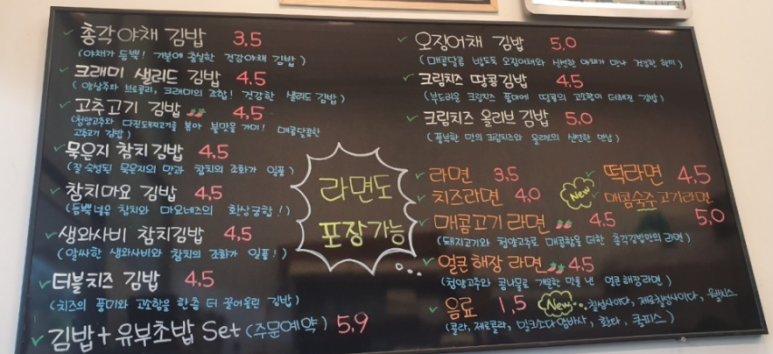 총각야채 김밥 3.5
(야채가 듬뿍! 기본에 충실한 건강야채 김밥)
크래미 샐러드 김밥 4.5
(양상추와 브로콜리, 크래미의 조합! 건강한 샐러드 김밥)
고추고기 김밥 4.5
(청양고추와 다진돼지고기를 볶아 불맛을 가미! 매콤달콤한
고추고기 김밥)
묵은지 참치김밥 4.5
(잘 숙성된 묵은지의 맛과 참치의 조화가 일품)
참치마요 김밥 4.5
(듬뿍 넣은 참치와 마요네즈의 환상궁합!)
생와사비 참치김밥 4.5
(알싸한 생와사비와 참치의 조화가 일품!)
더블치즈 김밥 4.5
(치즈의 풍미와 고소함을 한층 더 끌어올린 김밥)
김밥+유부초밥 Set (주문예약) 5.9
라면도
포장가능
오징어채 김밥 5.0
크림치즈 땅콩김밥 4.5
(부드러운 크림치즈 풍미에 땅콩의 고소함이 더해진 김밥)
크림치즈 올리브 김밥 5.0
(풍부한 맛의 크림치즈와 올리브의 신선한 만남)
라면 3.5
치즈라면 4.0
매콤고기라면 4.5
(돼지고기와 청양고추로 매콤함을 더한 총각김밥만의 라면)
얼큰해장라면 4.5
(청양고추와 콩나물로 개운한 맛을 낸 얼큰해장라면)
New
떡라면 4.5
매콤숙주고기라면
5.0
음료 1.5 New 칠성사이다, 제로칠성사이다,
(콜라, 제로콜라, 밀키스, 환타,